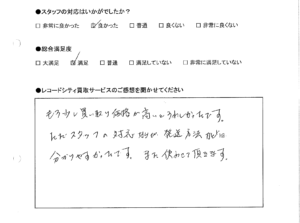 ●スタッフの対応はいかがでしたか？
□ 非常に良かった ☑ 良かった □ 普通 □ 良くない □ 非常に良くない
●総合満足度
□ 大満足 ☑ 満足 □ 普通 □ 満足していない □ 非常に満足していない
●レコードシティ買取サービスのご感想を聞かせてください
もう少し買い取り価格が高いとうれしかったです。
ただスタッフの対応 発送方法など
分かりやすかったです。また使わせて頂きます。